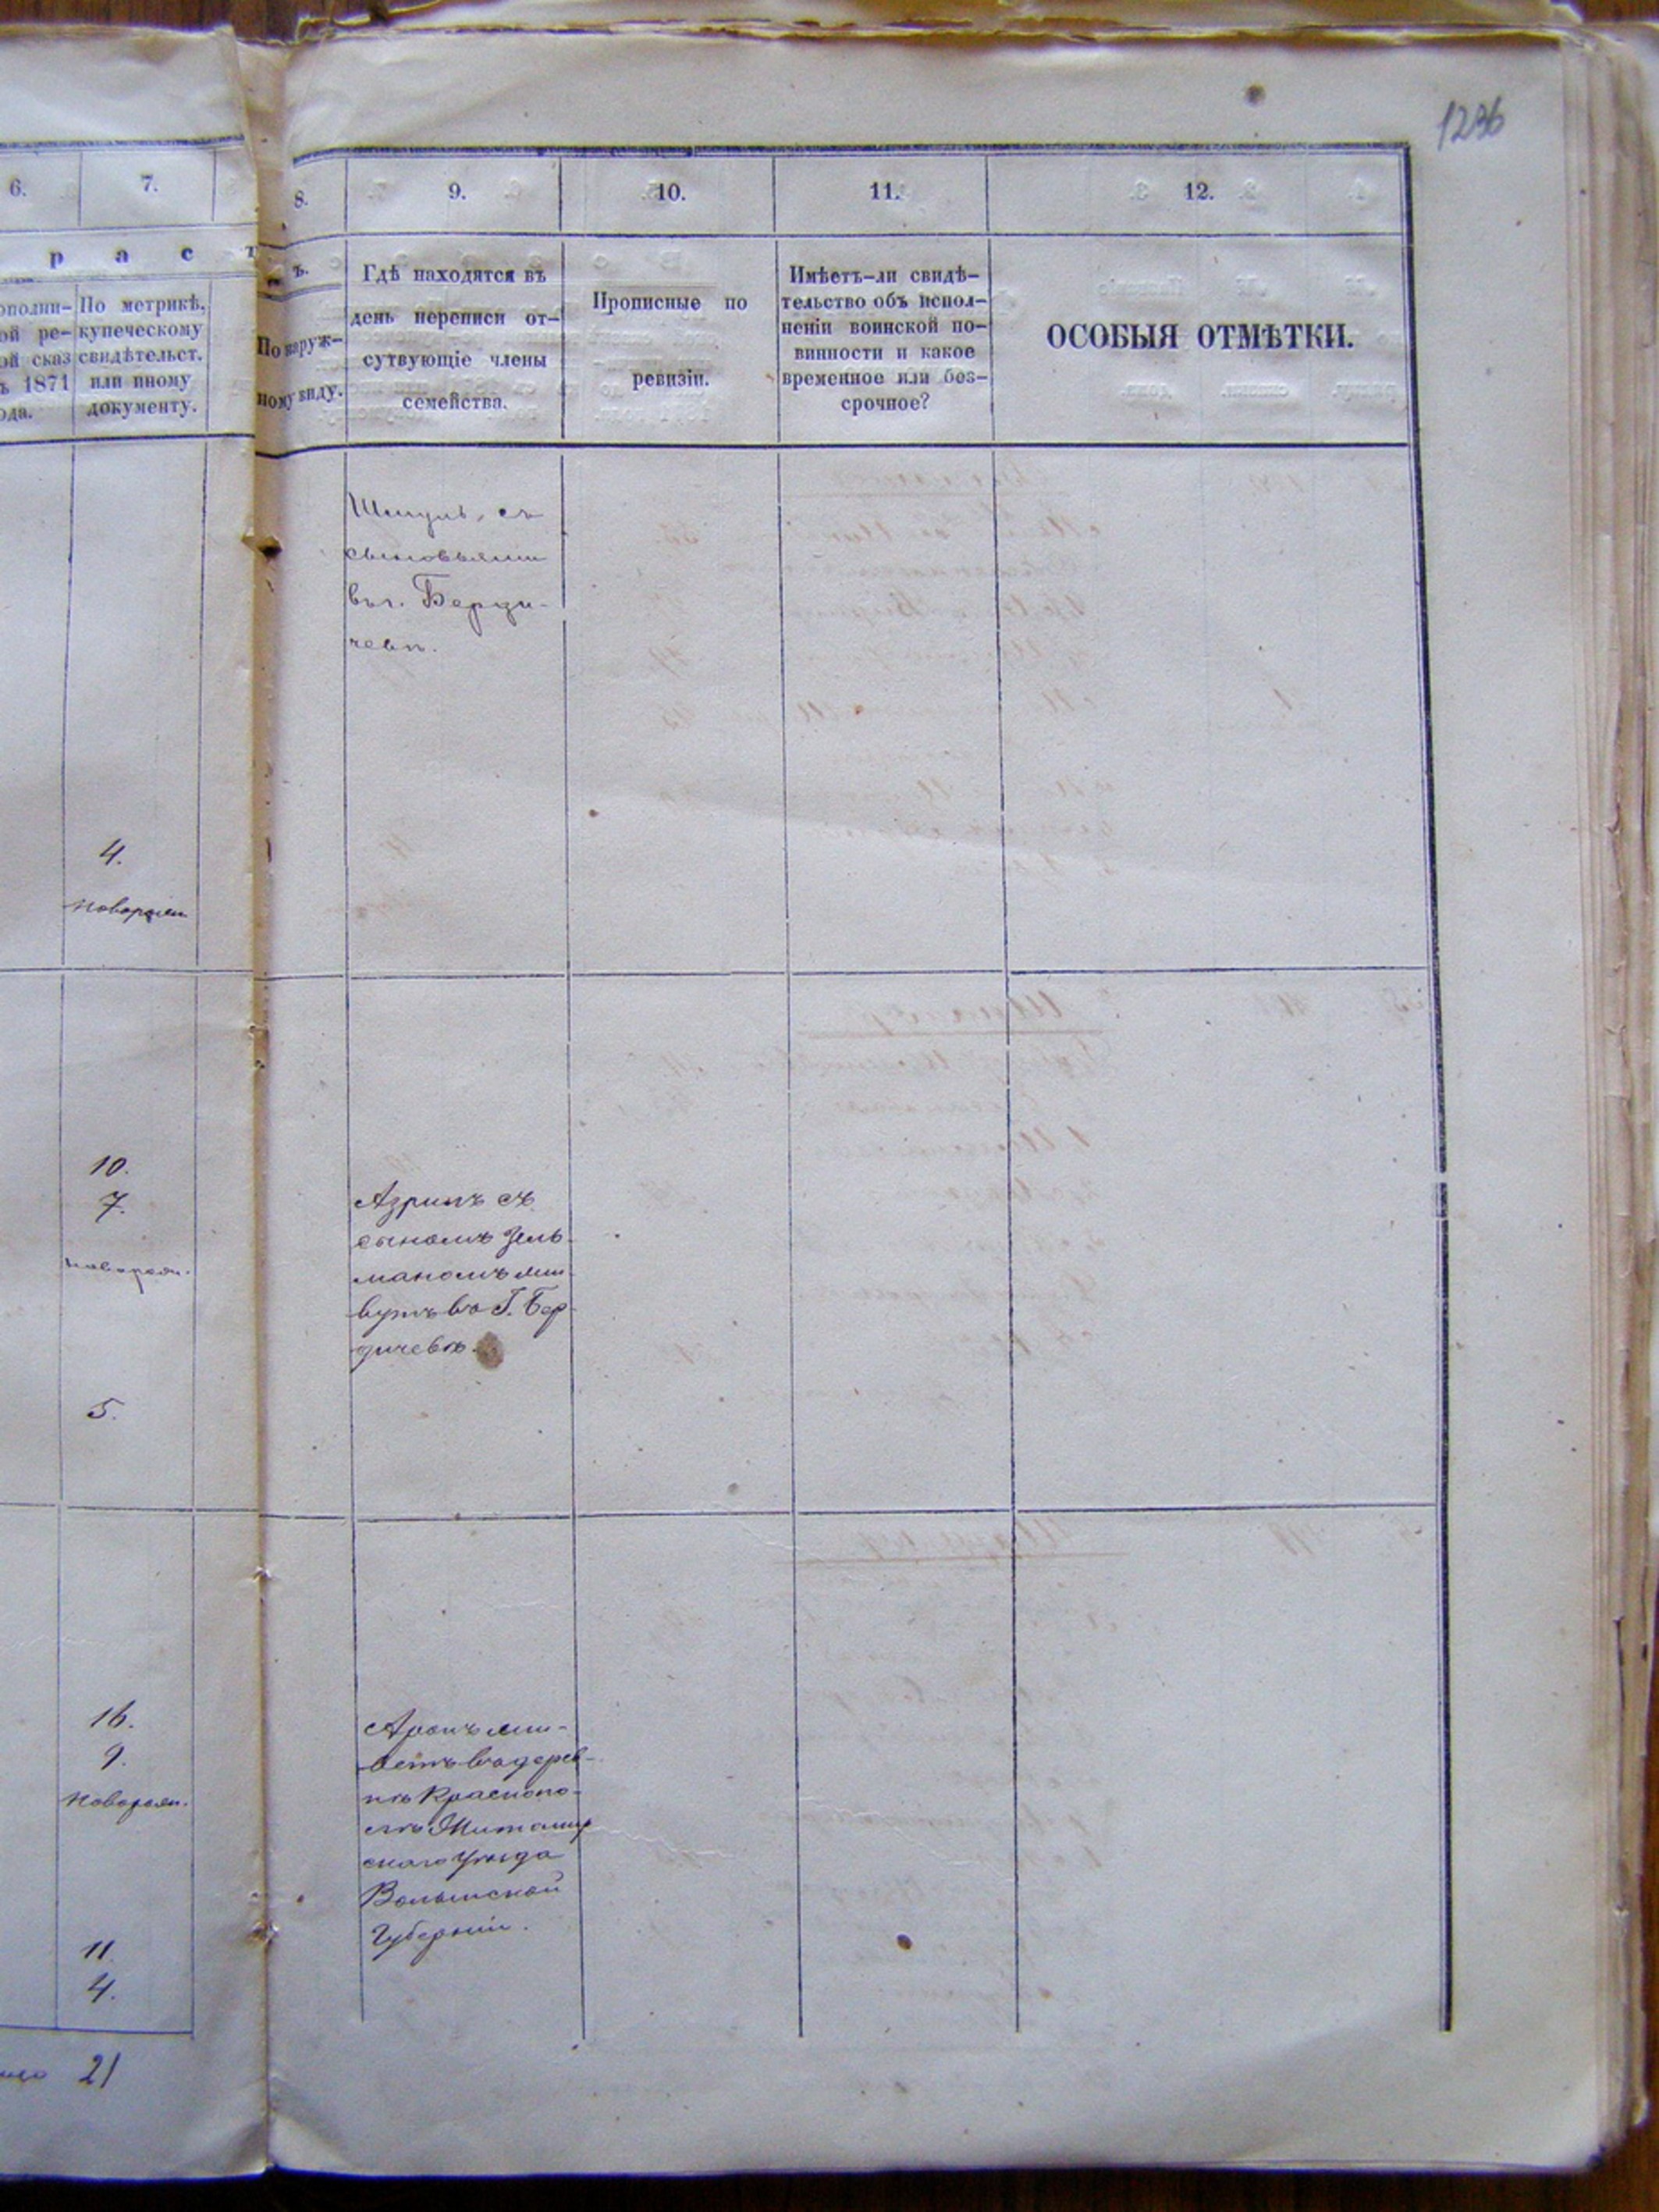 1236
6. 7. 8. 9. 10. 11. 12.
р а с т ъ.
ополни-
ой ре-
ой сказ
ъ 1871
ода.
По метрикѣ,
купеческому
свидѣтельст.
или иному
документу.
По наруж-
ному виду.
Гдѣ находятся въ
день переписи от-
сутвующіе члены
семейства.
Прописные по
ревизіи.
Имѣетъ-ли свидѣ-
тельство объ испол-
неніи воинской по-
винности и какое
временное или без-
срочное?
ОСОБЫЯ ОТМѢТКИ.
Шмуль, съ
сыновьями
въ г. Берди-
чевѣ.
4.
новорожд.
10.
7.
новорожд.
5.
Азрилъ съ
сыномъ Зель-
маномъ жи-
вутъ въ Г. Бер-
дичевѣ.
16.
9.
новорожд.
11.
4.
Аронъ жи-
ветъ въ дерев-
нѣ Краснопо-
лѣ Житомир
скаго уѣзда
Волынской
Губерніи.
21